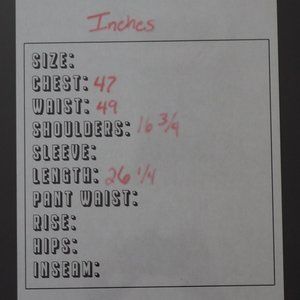 Inches
SIZE:
CHEST: 47
WAIST: 49
SHOULDERS: 16 3/4
SLEEVE:
LENGTH: 26 1/4
PANT WAIST:
RISE:
HIPS:
INSEAM: